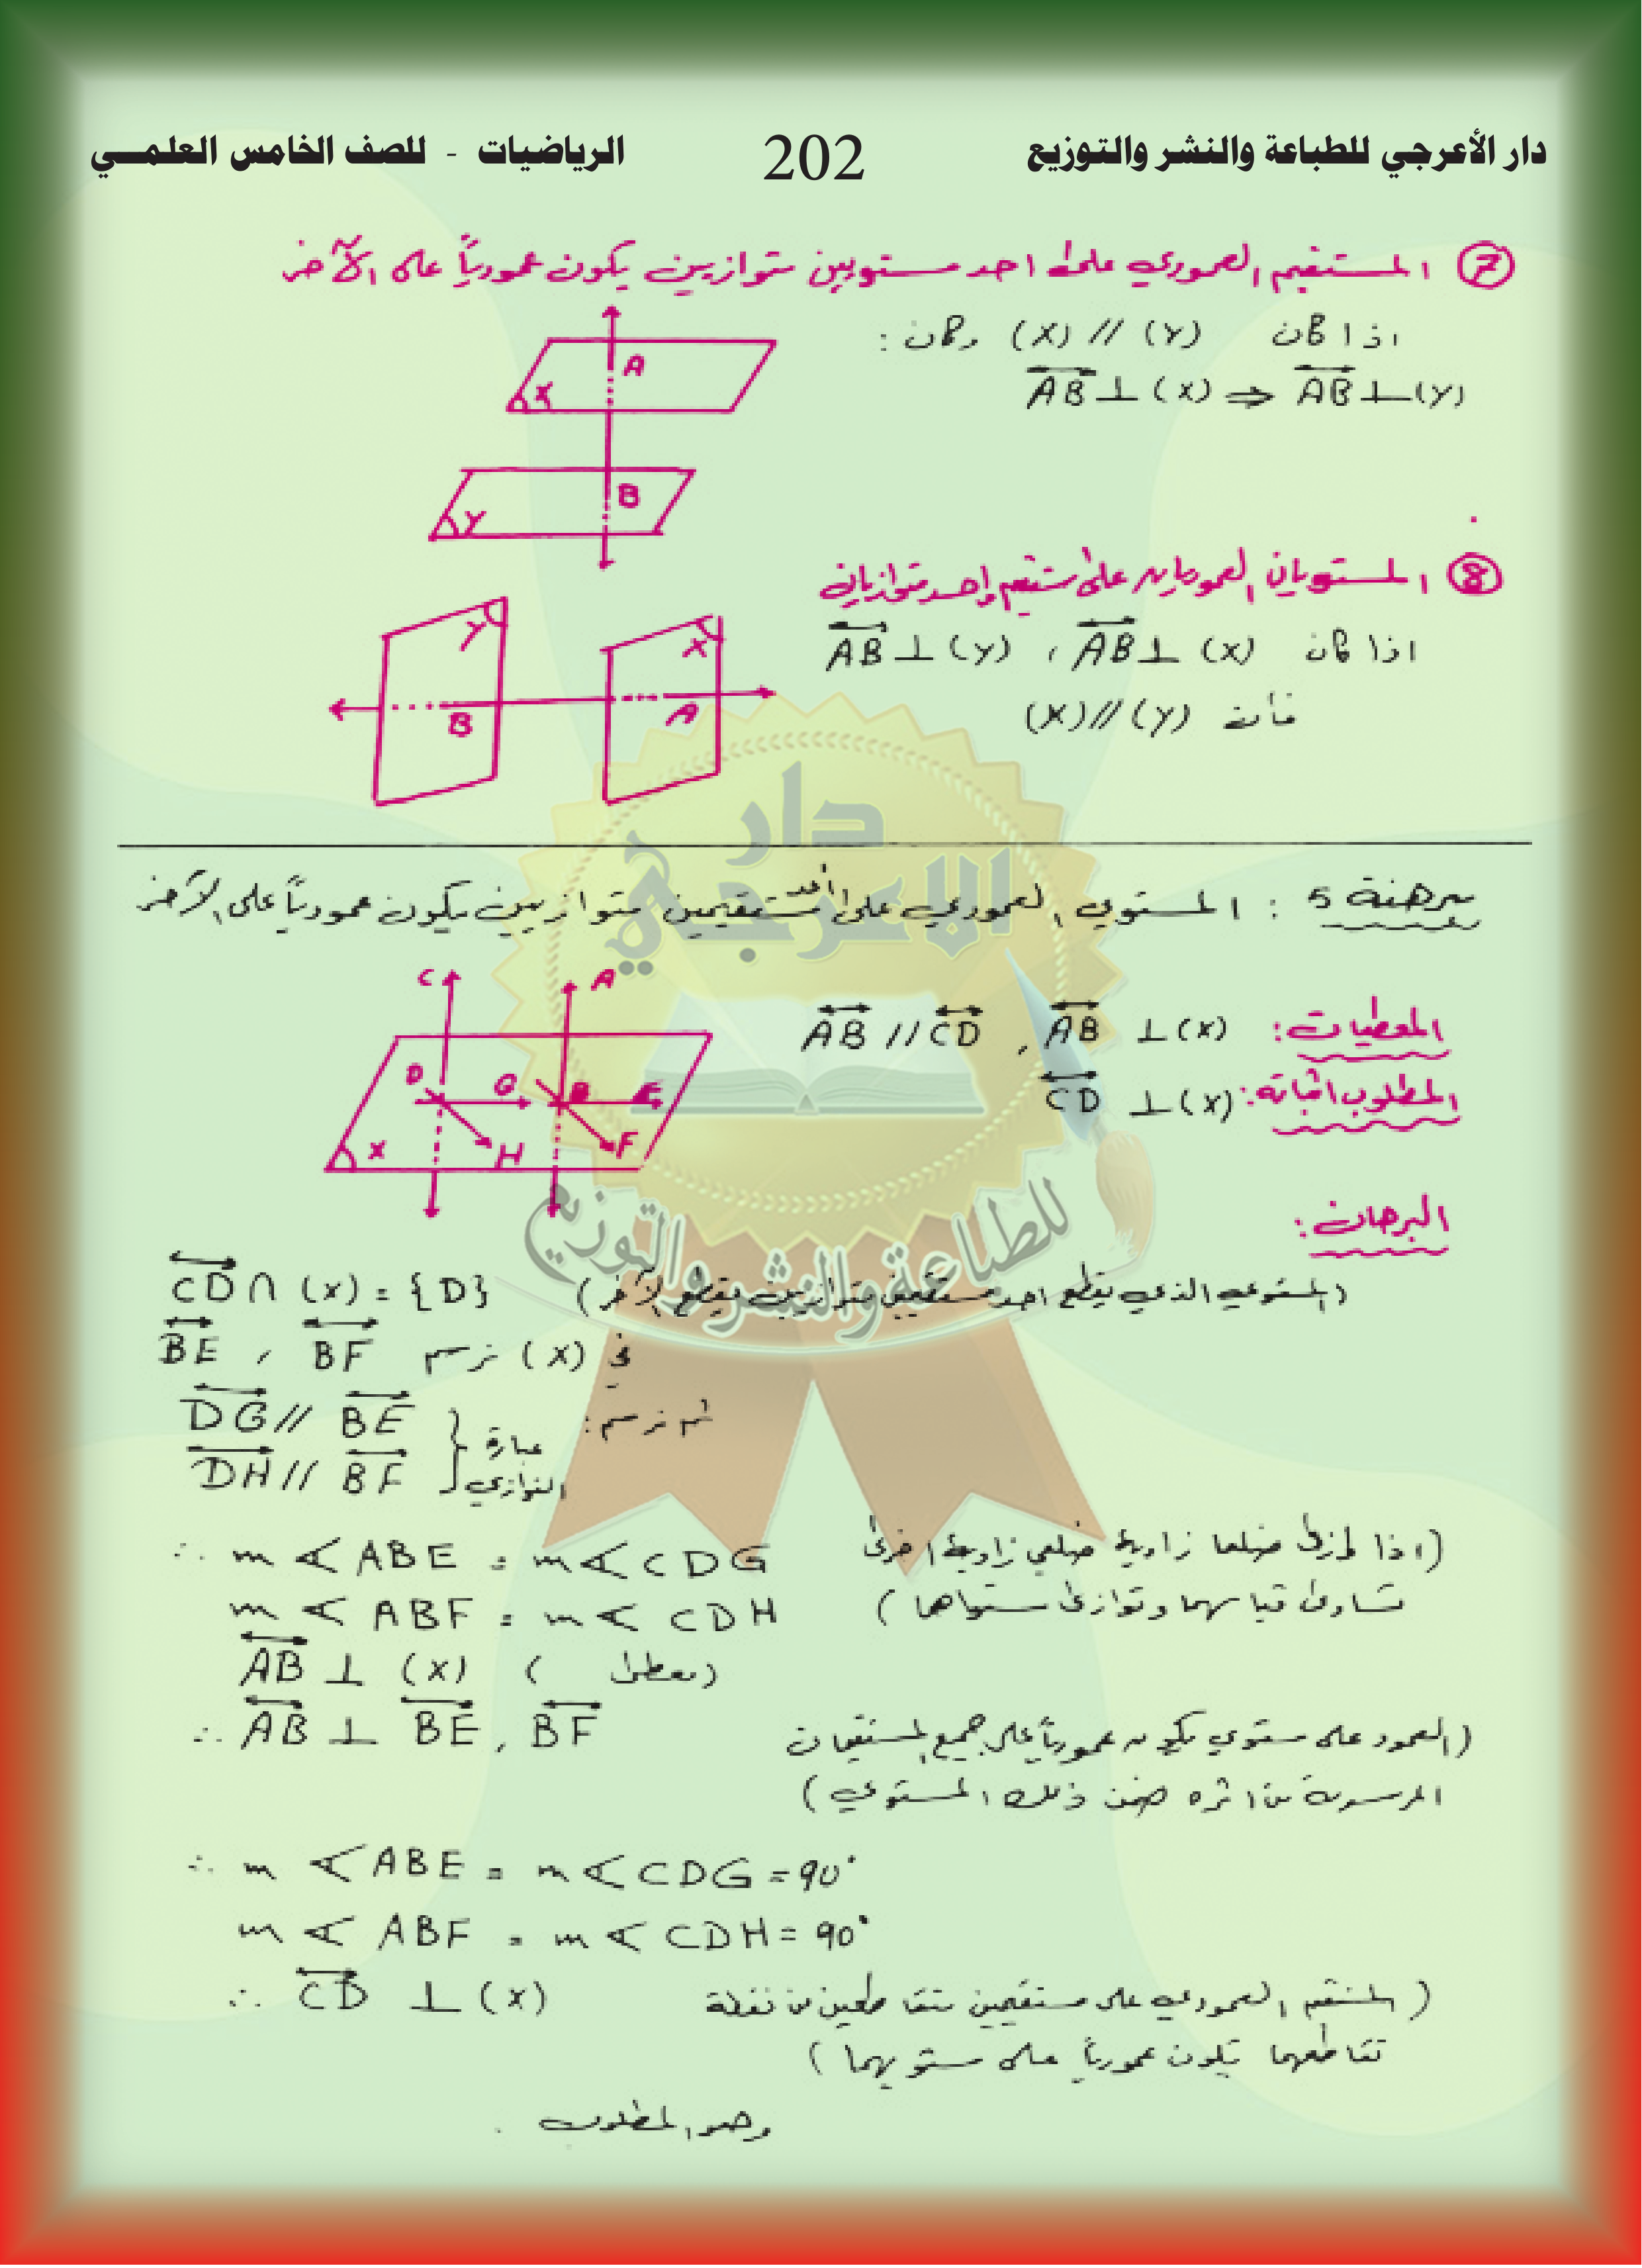 دار الأعرجي للطباعة والنشر والتوزيع 202 الرياضيات - للصف الخامس العلمي
⑦ المستقيم العمودي على احد مستويين متوازيين يكون عمودياً على الآخر
اذا كان (X) // (Y) وكان :
AB ⊥ (X) ⇒ AB ⊥ (Y)
A
X
B
Y
⑧ المستويان العموديان على مستقيم واحد متوازيان
اذا كان AB ⊥ (X) ، AB ⊥ (Y)
فأن (X) // (Y)
Y
X
B
A
دار
الاعرجي
للطباعة والنشر والتوزيع
مبرهنة 5 : المستوي العمودي على احد مستقيمين متوازيين يكون عمودياً على الآخر
C A
D G B E
X H F
المعطيات : AB ⊥ (X) , AB // CD
المطلوب اثباته : CD ⊥ (X)
البرهان :
CD ∩ (X) = {D} (المستوي الذي يقطع احد مستقيمين متوازيين يقطع الآخر)
في (X) نرسم BE ، BF
ثم نرسم : DG // BE
DH // BF } عبارة التوازي
∴ m ∢ ABE = m ∢ CDG (اذا وازى ضلعا زاوية ضلعي زاوية اخرى
m ∢ ABF = m ∢ CDH تساوى قياسهما وتوازى مستواهما)
AB ⊥ (X) (معطى)
∴ AB ⊥ BE , BF (العمود على مستوي يكون عمودياً على جميع المستقيمات
المرسومة من اثره ضمن ذلك المستوي)
∴ m ∢ ABE = m ∢ CDG = 90°
m ∢ ABF = m ∢ CDH = 90°
∴ CD ⊥ (X) (المستقيم العمودي على مستقيمين متقاطعين من نقطة
تقاطعهما يكون عمودياً على مستويهما)
وهو المطلوب .